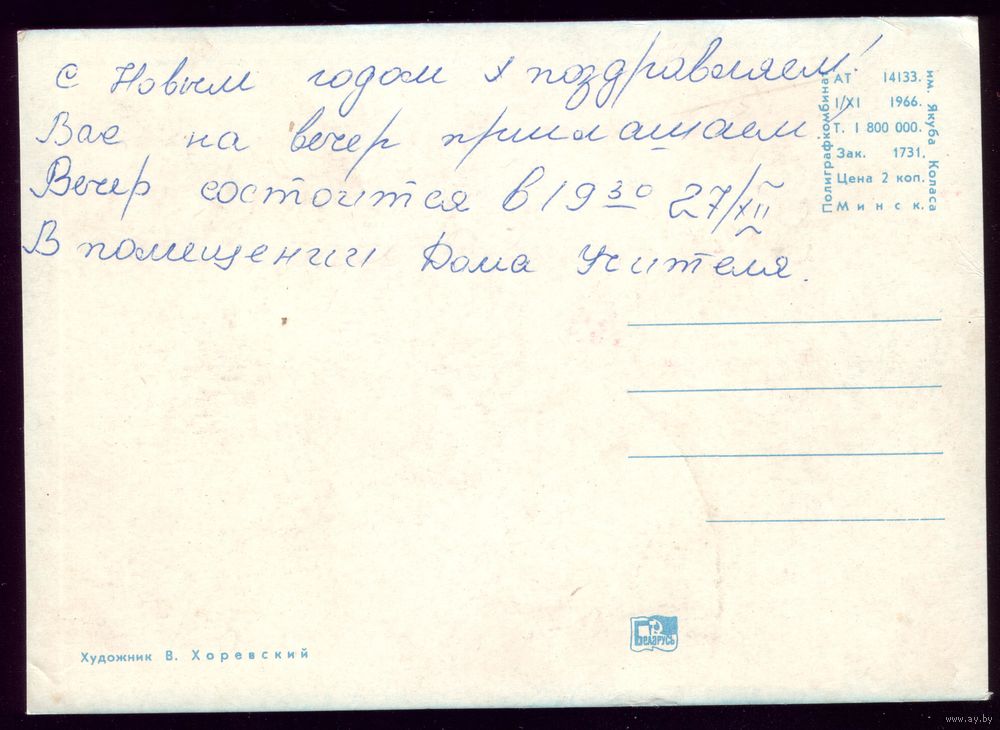 С Новым годом поздравляем!
Вас на вечер приглашаем!
Вечер состоится в 19 30 27/XII
В помещении Дома Учителя.
АТ 14133.
I/XI 1966.
Т. 1 800 000.
Зак. 1731.
Цена 2 коп.
Минск.
Полиграфкомбинат
им. Якуба Коласа
Беларусь
Художник В. Хоревский
www.ay.by